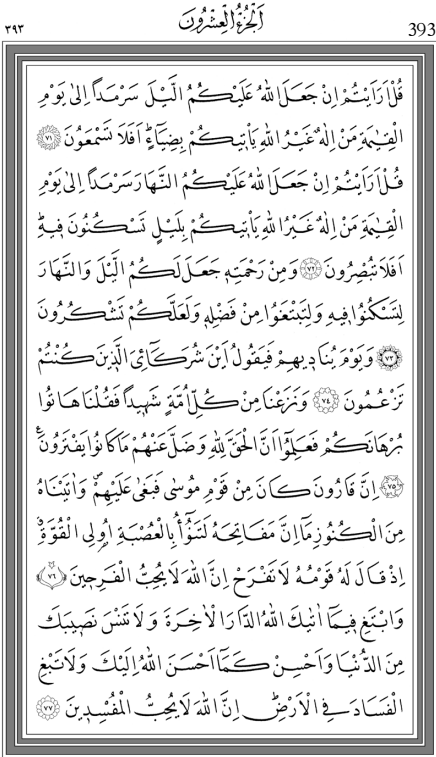 ٣٩٣ اَلْجُزْءُ الْعِشْرُونَ 393
قُلْ اَرَاَيْتُمْ اِنْ جَعَلَ اللّٰهُ عَلَيْكُمُ الَّيْلَ سَرْمَدًا اِلٰى يَوْمِ
الْقِيٰمَةِ مَنْ اِلٰهٌ غَيْرُ اللّٰهِ يَأْتٖيكُمْ بِضِيَٓاءٍۜ اَفَلَا تَسْمَعُونَ ﴿٧١﴾
قُلْ اَرَاَيْتُمْ اِنْ جَعَلَ اللّٰهُ عَلَيْكُمُ النَّهَارَ سَرْمَدًا اِلٰى يَوْمِ
الْقِيٰمَةِ مَنْ اِلٰهٌ غَيْرُ اللّٰهِ يَأْتٖيكُمْ بِلَيْلٍ تَسْكُنُونَ فٖيهِۜ
اَفَلَا تُبْصِرُونَ ﴿٧٢﴾ وَمِنْ رَحْمَتِهٖ جَعَلَ لَكُمُ الَّيْلَ وَالنَّهَارَ
لِتَسْكُنُوا فٖيهِ وَلِتَبْتَغُوا مِنْ فَضْلِهٖ وَلَعَلَّكُمْ تَشْكُرُونَ
﴿٧٣﴾ وَيَوْمَ يُنَادٖيهِمْ فَيَقُولُ اَيْنَ شُرَكَٓاءِيَ الَّذٖينَ كُنْتُمْ
تَزْعُمُونَ ﴿٧٤﴾ وَنَزَعْنَا مِنْ كُلِّ اُمَّةٍ شَهٖيدًا فَقُلْنَا هَاتُوا
بُرْهَانَكُمْ فَعَلِمُٓوا اَنَّ الْحَقَّ لِلّٰهِ وَضَلَّ عَنْهُمْ مَا كَانُوا يَفْتَرُونَ ۟
﴿٧٥﴾ اِنَّ قَارُونَ كَانَ مِنْ قَوْمِ مُوسٰى فَبَغٰى عَلَيْهِمْۖ وَاٰتَيْنَاهُ
مِنَ الْكُنُوزِ مَٓا اِنَّ مَفَاتِحَهُ لَتَنُٓوأُ بِالْعُصْبَةِ اُو۬لِي الْقُوَّةِۗ
اِذْ قَالَ لَهُ قَوْمُهُ لَا تَفْرَحْ اِنَّ اللّٰهَ لَا يُحِبُّ الْفَرِحٖينَ ﴿٧٦﴾
وَابْتَغِ فٖيمَٓا اٰتٰيكَ اللّٰهُ الدَّارَ الْاٰخِرَةَ وَلَا تَنْسَ نَصٖيبَكَ
مِنَ الدُّنْيَا وَاَحْسِنْ كَمَٓا اَحْسَنَ اللّٰهُ اِلَيْكَ وَلَا تَبْغِ
الْفَسَادَ فِي الْاَرْضِۜ اِنَّ اللّٰهَ لَا يُحِبُّ الْمُفْسِدٖينَ ﴿٧٧﴾